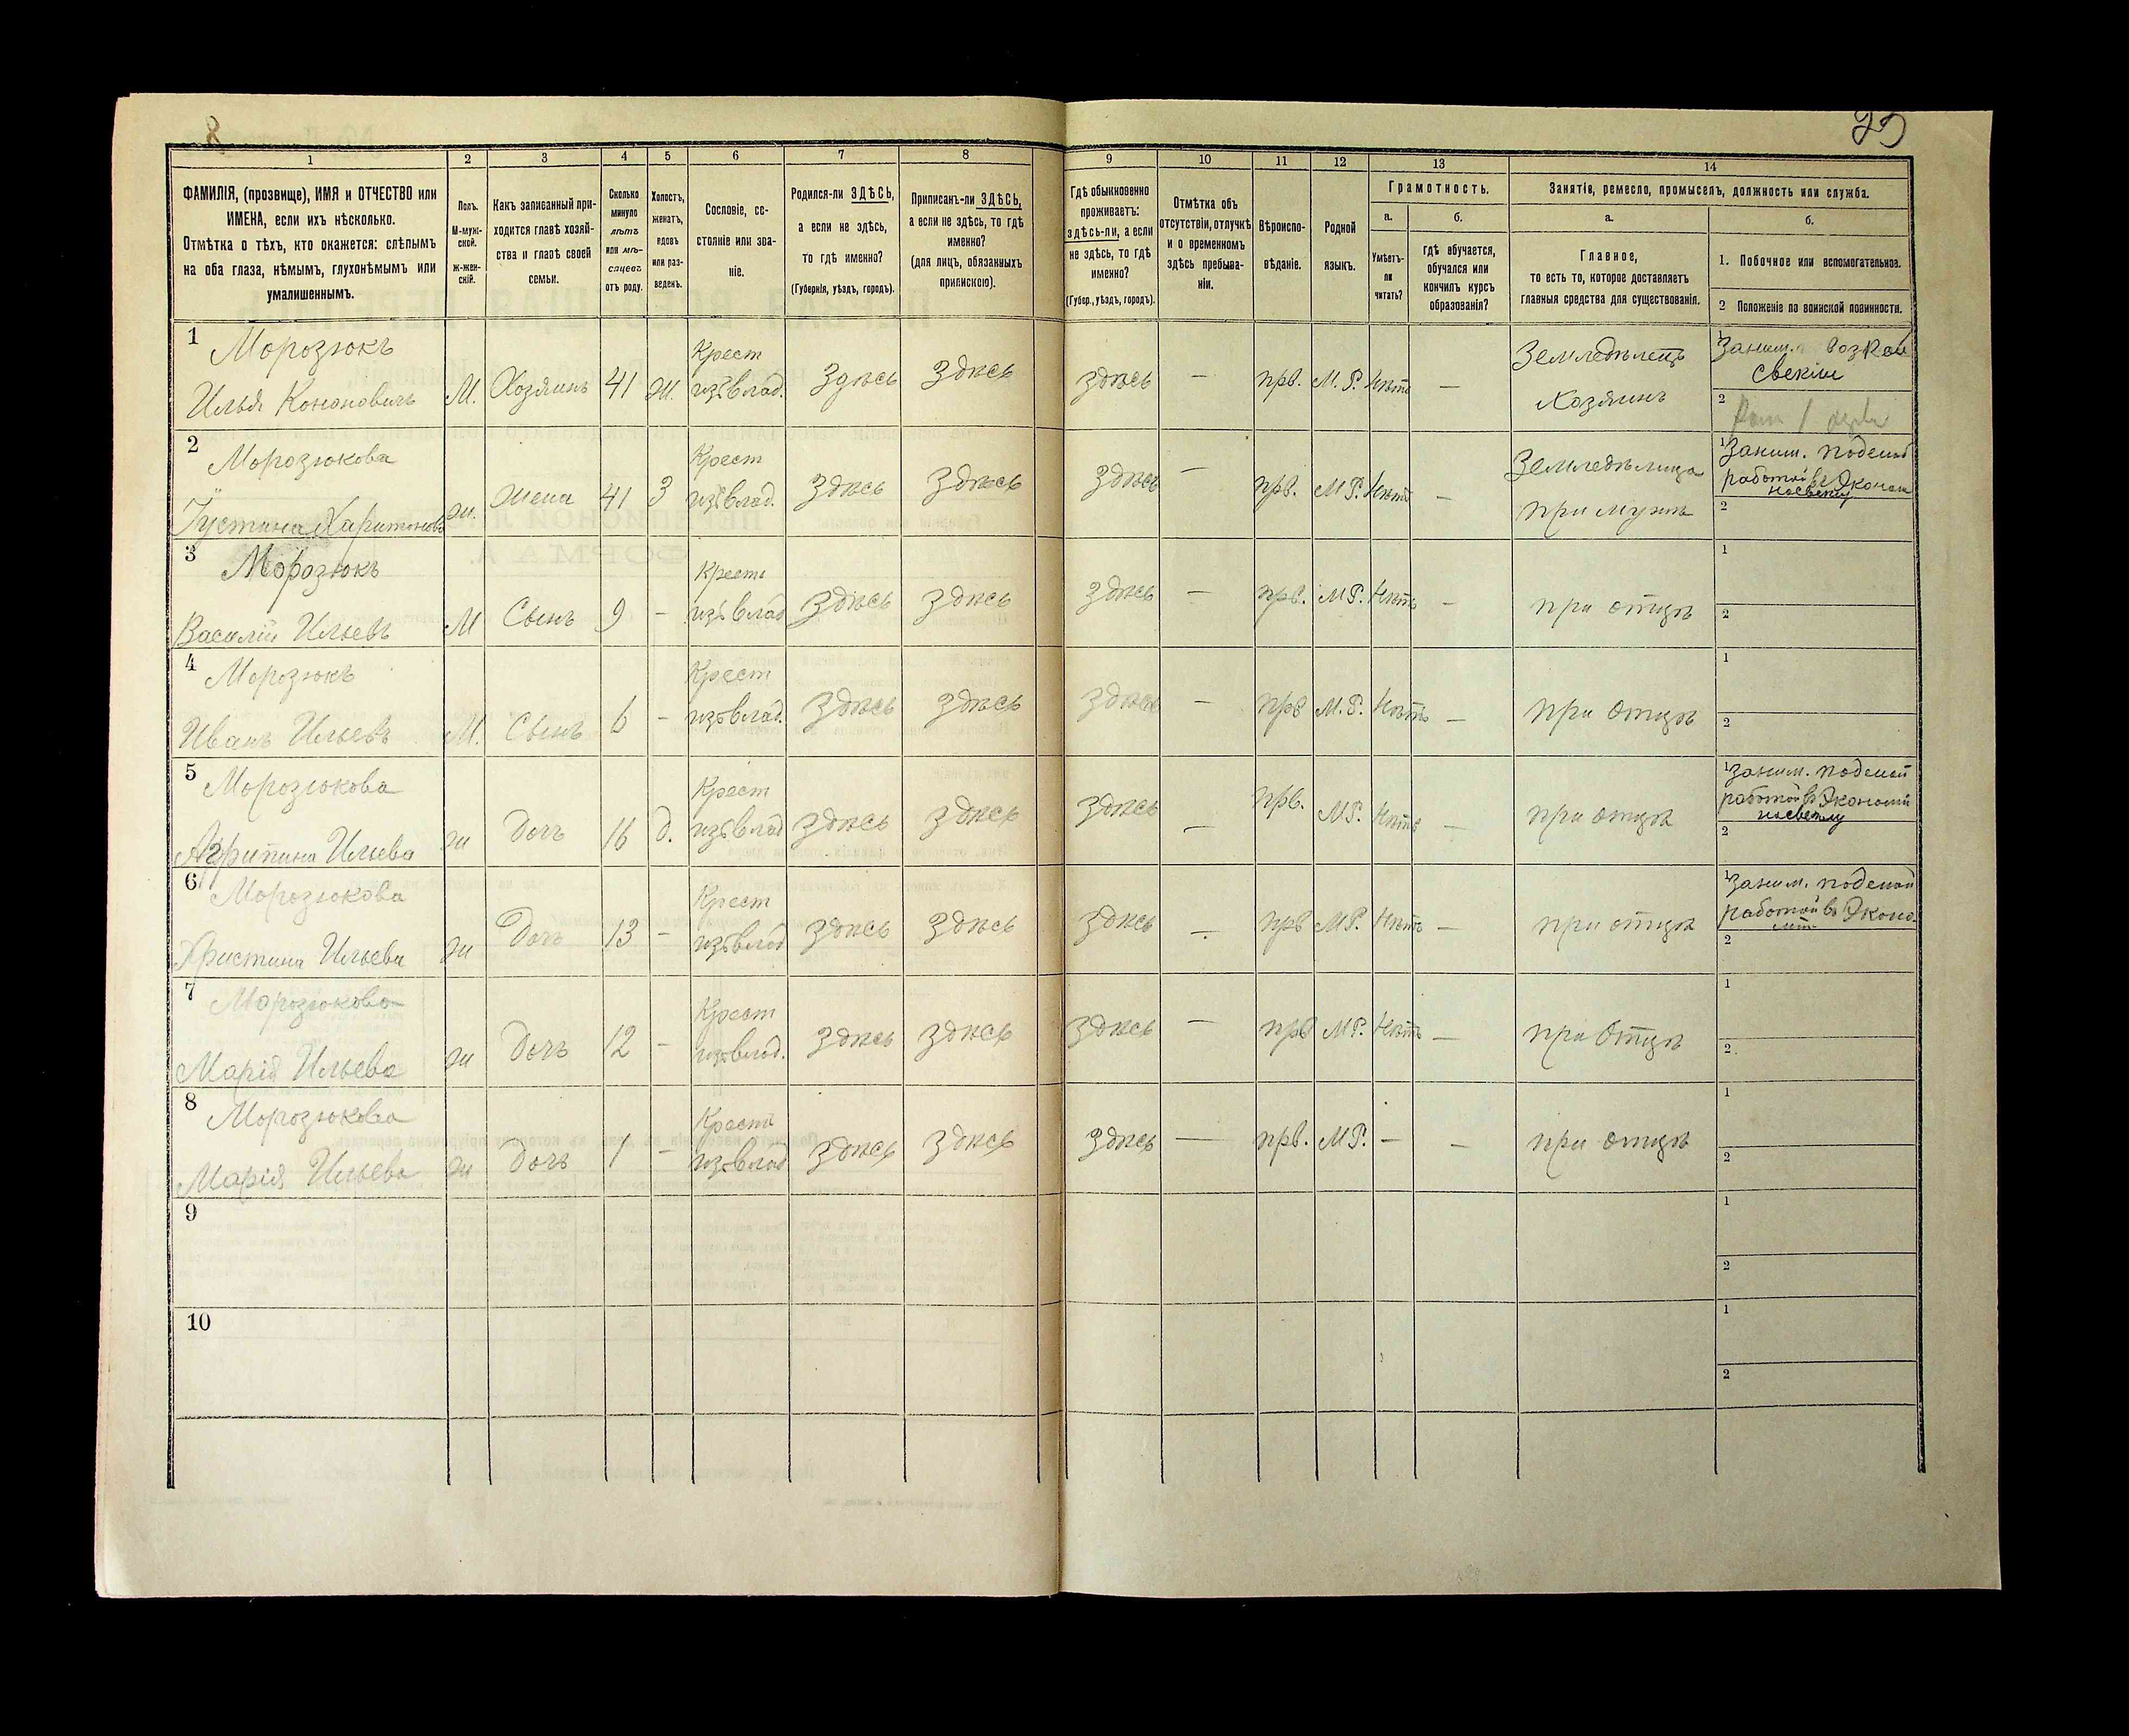 8
25
1
2
3
4
5
6
7
8
9
10
11
12
13
14
ФАМИЛІЯ, (прозвище), ИМЯ и ОТЧЕСТВО или
ИМЕНА, если ихъ нѣсколько.
Отмѣтка о тѣхъ, кто окажется: слѣпымъ
на оба глаза, нѣмымъ, глухонѣмымъ или
умалишеннымъ.
Полъ.
М-муж-
ской.
ж-жен-
скій.
Какъ записанный при-
ходится главѣ хозяй-
ства и главѣ своей
семьи.
Сколько
минуло
лѣтъ
или мѣ-
сяцевъ
отъ роду.
Холостъ,
женатъ,
вдовъ
или раз-
веденъ.
Сословіе, со-
стояніе или зва-
ніе.
Родился-ли ЗДѢСЬ,
а если не здѣсь,
то гдѣ именно?
(Губернія, уѣздъ, городъ).
Приписанъ-ли ЗДѢСЬ,
а если не здѣсь, то гдѣ
именно?
(для лицъ, обязанныхъ
припискою).
Гдѣ обыкновенно
проживаетъ:
здѣсь-ли, а если
не здѣсь, то гдѣ
именно?
(Губер., уѣздъ, городъ).
Отмѣтка объ
отсутствіи, отлучкѣ
и о временномъ
здѣсь пребыва-
ніи.
Вѣроиспо-
вѣданіе.
Родной
языкъ.
Грамотность.
а.
Умѣетъ-
ли
читать?
б.
гдѣ обучается,
обучался или
кончилъ курсъ
образованія?
Занятіе, ремесло, промыселъ, должность или служба.
а.
Главное,
то есть то, которое доставляетъ
главныя средства для существованія.
б.
1. Побочное или вспомогательное.
2 Положеніе по воинской повинности.
1
Морозюкъ
Илья Кононовичъ
М.
Хозяинъ
41
Ж.
Крест
изъ влад.
Здѣсь
Здѣсь
Здѣсь
—
прв.
М. Р.
Нѣтъ
—
Земледѣлецъ
Хозяинъ
1
Заним. возкой
Свеклы
2
2
Морозюкова
Іустина Харитонова
Ж.
Жена
41
З
Крест
изъ влад.
Здѣсь
Здѣсь
Здѣсь
—
прв.
М Р.
Нѣтъ
—
Земледѣлица
при мужѣ
1
Заним. поденой
работой въ Эконом
2
3
Морозюкъ
Василій Ильевъ
М
Сынъ
9
—
Крест
изъ влад
Здѣсь
Здѣсь
Здѣсь
—
прв.
М Р.
Нѣтъ
—
при отцѣ
1
2
4
Морозюкъ
Иванъ Ильевъ
М.
Сынъ
6
—
Крест
изъ влад.
Здѣсь
Здѣсь
Здѣсь
—
прв
М. Р.
Нѣтъ
—
при отцѣ
1
2
5
Морозюкова
Агрипина Ильева
Ж
Дочь
16
д.
Крест
изъ влад
Здѣсь
Здѣсь
Здѣсь
—
прв.
М Р.
Нѣтъ
—
при отцѣ
1
Заним. поденой
работой въ Экономіи
2
6
Морозюкова
Христина Ильева
Ж
Дочь
13
—
Крест
изъ влад
Здѣсь
Здѣсь
Здѣсь
—
прв
М Р.
Нѣтъ
—
при отцѣ
1
Заним. поденой
работой въ Эконо.
2
7
Морозюкова
Марія Ильева
Ж
Дочь
12
—
Крест
изъ влад.
Здѣсь
Здѣсь
Здѣсь
—
прв
М Р.
Нѣтъ
—
при Отцѣ
1
2
8
Морозюкова
Марія Ильева
Ж
Дочь
1
—
Крест
изъ влад
Здѣсь
Здѣсь
Здѣсь
—
прв.
М Р.
—
—
при отцѣ
1
2
9
1
2
10
1
2